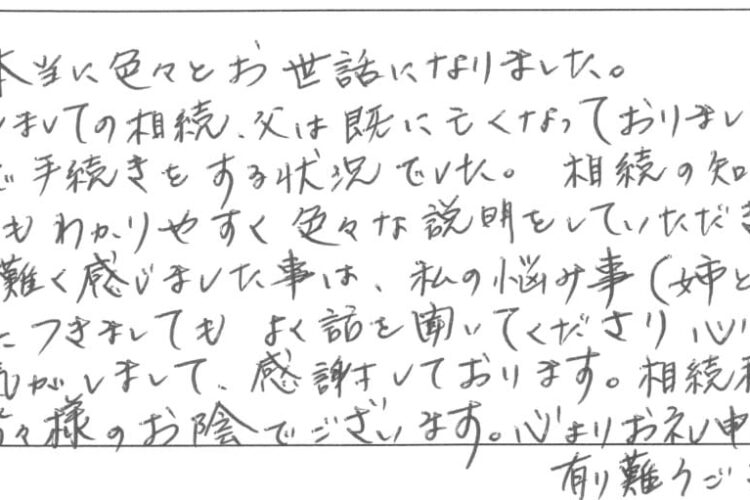 本当に色々とお世話になりました。
しましての相続、父は既に亡くなっておりまし
で手続きをする状況でした。 相続の知
もわかりやすく色々な説明をしていただき
難く感じました事は、私の悩み事(姉と
につきましても よく話を聞いてくださり 心
気がしまして、感謝しております。相続
方々様のお陰でございます。心よりお礼申
有り難うご